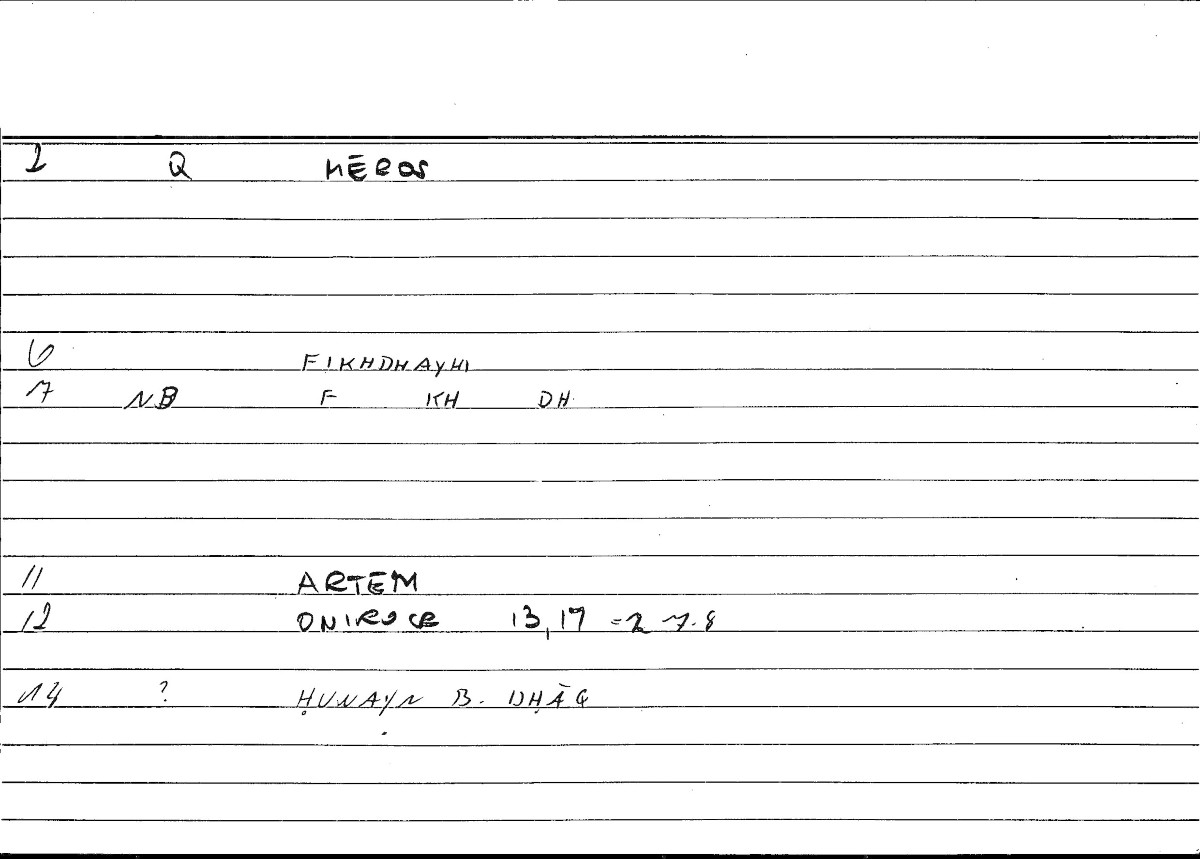 2 Q hĒROS
6 FIKHDHAYHI
7 NB F KH DH
11 ARTEM
12 ONIROCR 13,17 =2 7.8
14 ? ḤUNAYN B.